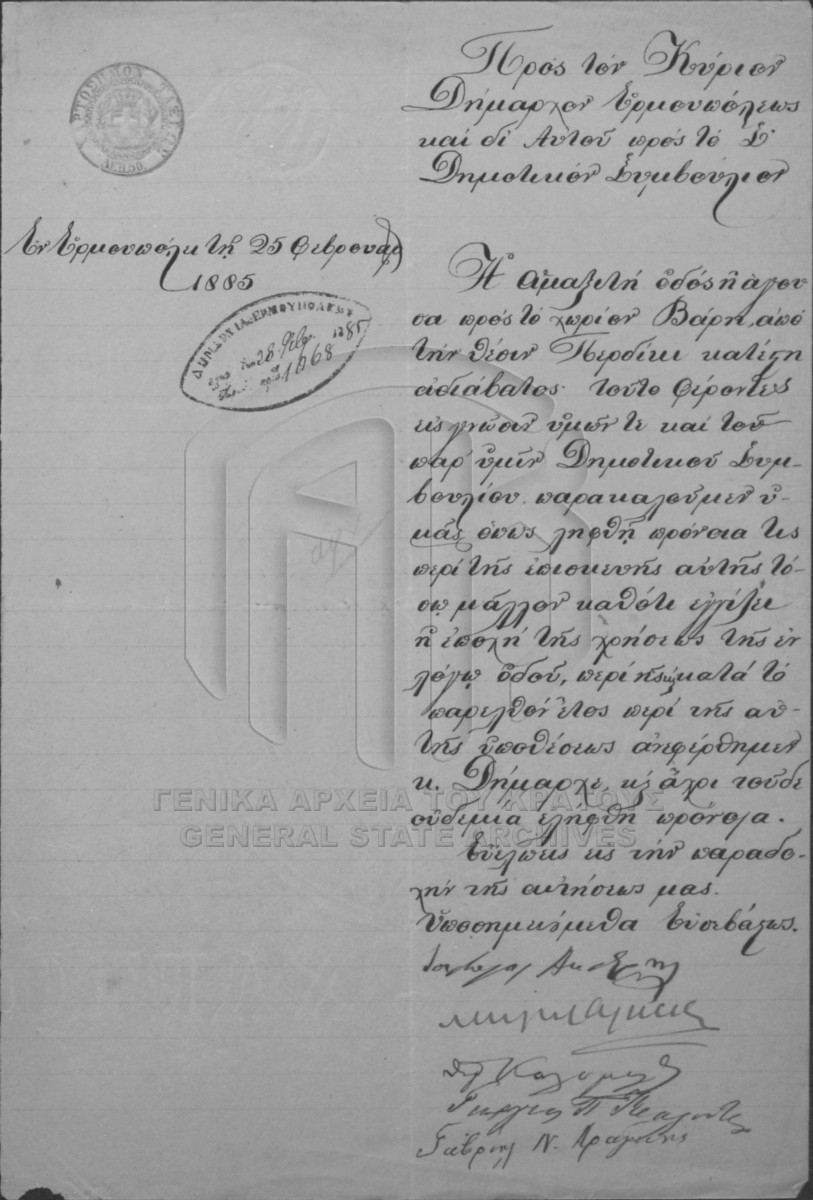 ΧΑΡΤΟΣΗΜΟΝ
Πρὸς τὸν Κύριον
Δήμαρχον Ἑρμουπόλεως
καὶ δι' Αὐτοῦ πρὸς τὸ Σ
Δημοτικὸν Συμβούλιον
Ἐν Ἑρμουπόλει τῇ 25 Φεβρουαρ
1885
ΔΗΜΑΡΧΙΑ ΕΡΜΟΥΠΟΛΕΩΣ
28 Φεβρ. 1885
1068
Ἡ ἁμαξιτὴ ὁδὸς ἡ ἄγου
σα πρὸς τὸ χωρίον Βάρη, ἀπὸ
τὴν θέσιν Περδίκι κατέστη
ἀδιάβατος. Τοῦτο φέροντες
εἰς γνῶσιν ὑμῶν τε καὶ τοῦ
παρ' ὑμῖν Δημοτικοῦ Συμ-
βουλίου παρακαλοῦμεν ὑ-
μᾶς ὅπως ληφθῇ πρόνοια τις
περὶ τῆς ἐπισκευῆς αὐτῆς τό-
σῳ μᾶλλον καθότι ἐγγίζει
ἡ ἐποχὴ τῆς χρήσεως τῆς ἐν
λόγῳ ὁδοῦ, περὶ ἧς κατὰ τὸ
παρελθὸν ἔτος περὶ τῆς αὐ-
τῆς ὑποθέσεως ἀνεφέρθημεν
κ. Δήμαρχε, κ' ἄχρι τοῦδε
οὐδεμία ἐλήφθη πρόνοια.
Εὐέλπεις εἰς τὴν παραδο-
χὴν τῆς αἰτήσεως μας.
Ὑποσημειούμεθα Εὐσεβάστως.
Γεώργιος Π.
Γαβριὴλ Ν.
ΓΕΝΙΚΑ ΑΡΧΕΙΑ ΤΟΥ ΚΡΑΤΟΥΣ
GENERAL STATE ARCHIVES